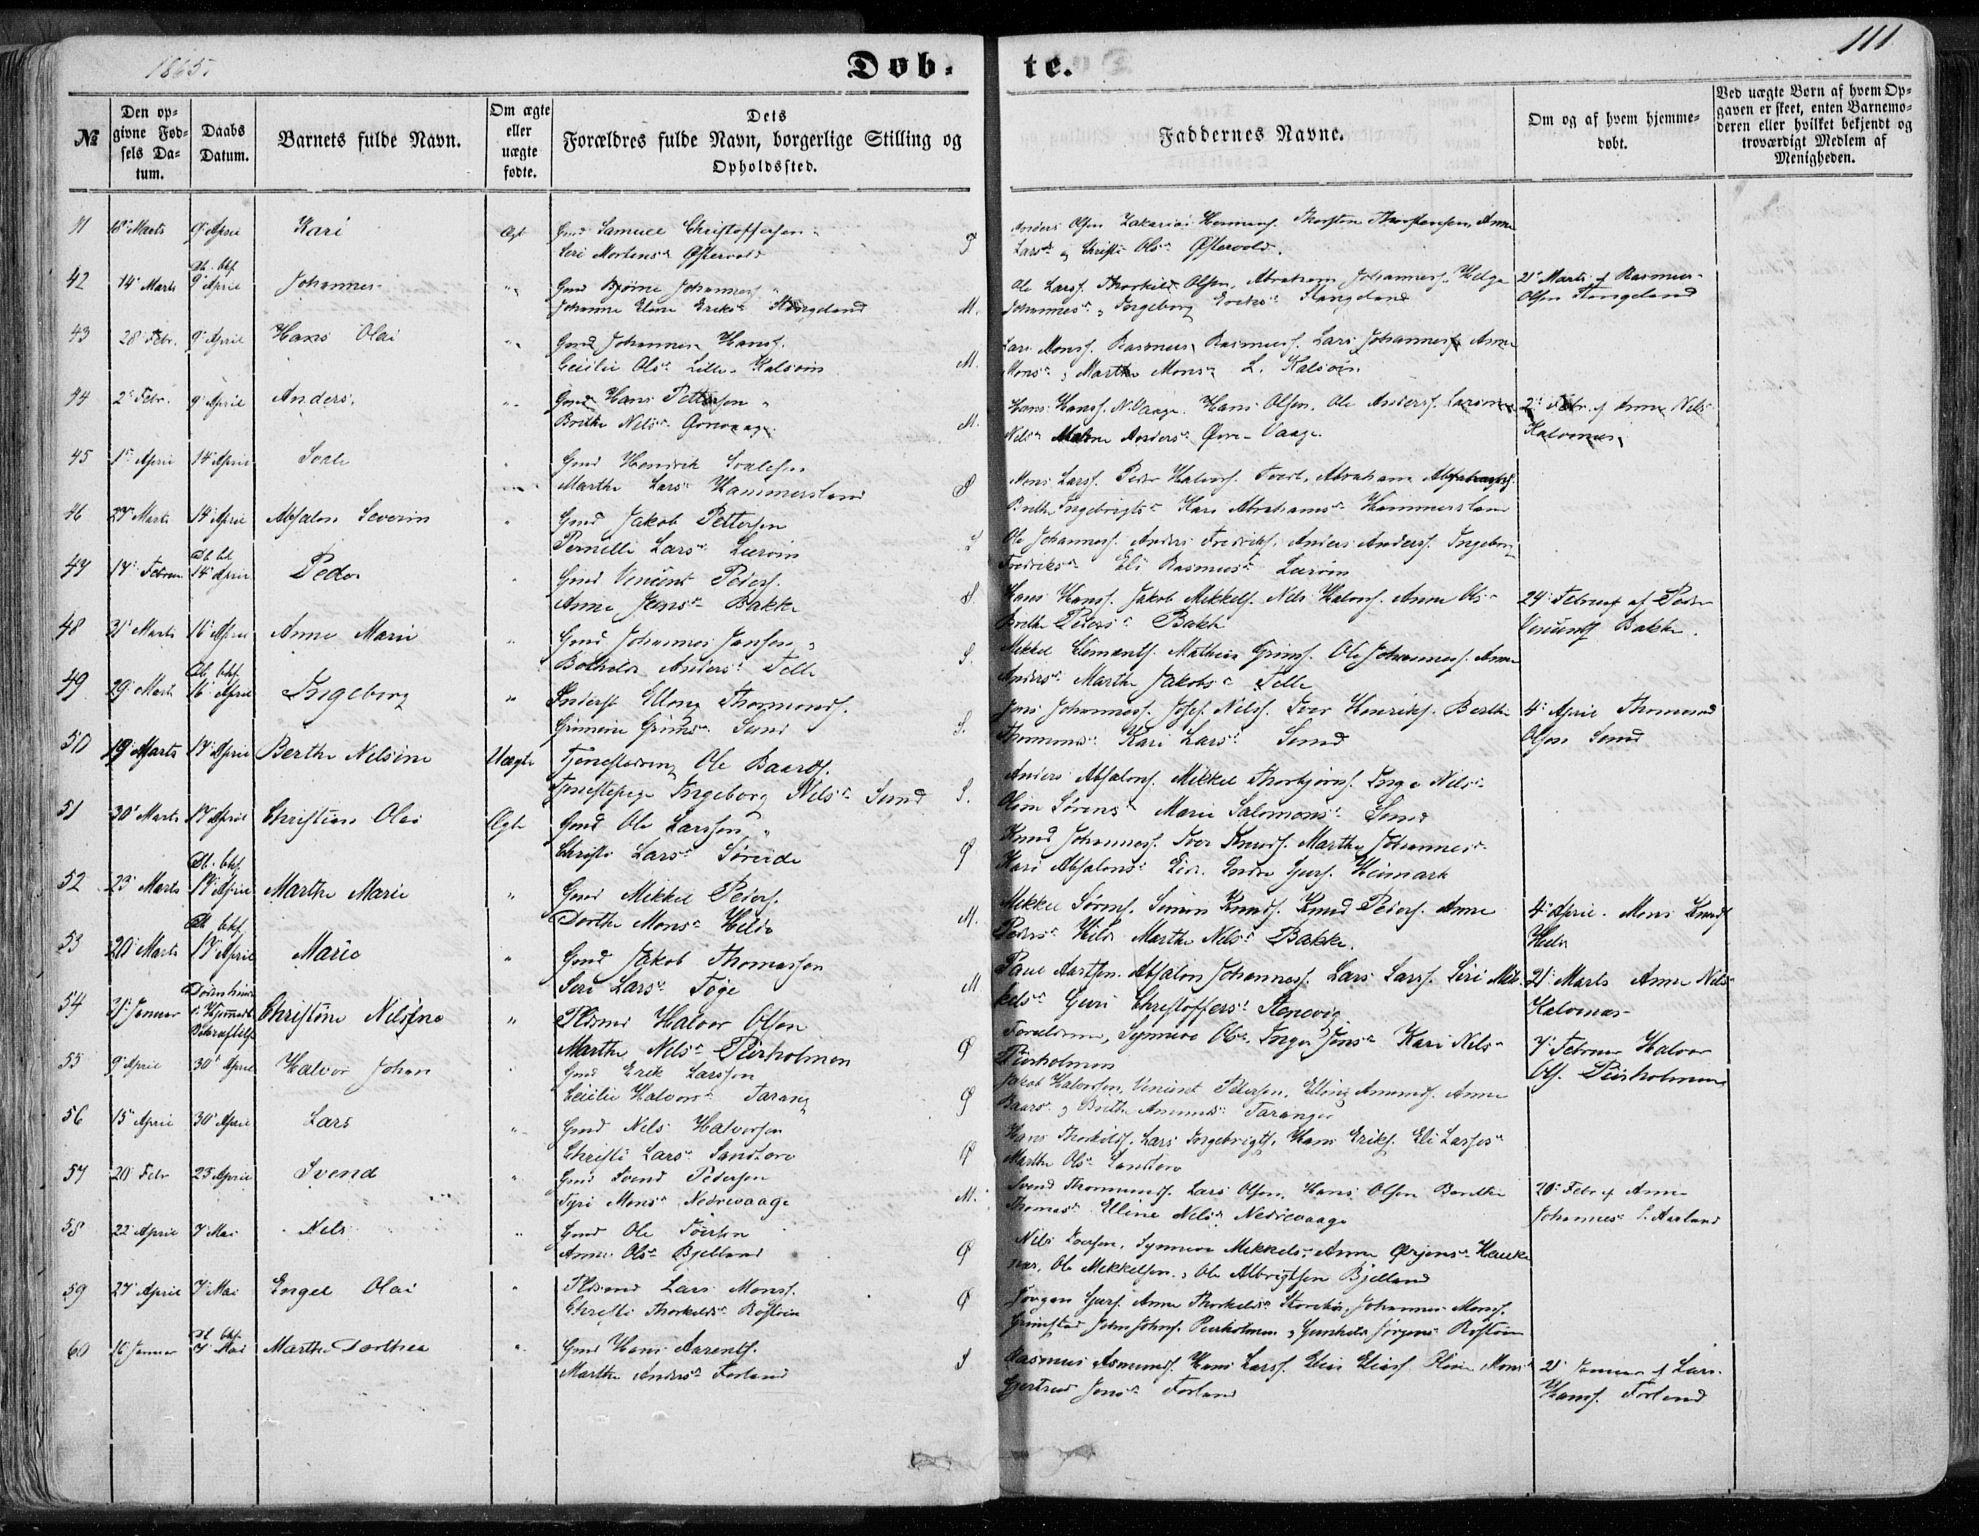 1865.
Døb-
te.
111
№
Den opgivne Fødsels Datum.
Daabs Datum.
Barnets fulde Navn.
Om ægte eller uægte fødte.
Dets Forældres fulde Navn, borgerlige Stilling og Opholdssted.
Faddernes Navne.
Om og af hvem hjemmedøbt.
Ved uægte Børn af hvem Opgaven er skeet, enten Barnemoderen eller hvilket bekjendt og troværdigt Medlem af Menigheden.
41 18 Marts 9 April Kari Ægte Gmd Samuel Christoffersen
Seri Mortensd. Østervold
Anders Olsen Zakarias Thorsten Thorstensen, Anne
Larsd. og Christi Olsd. Østervold.
42 14 Marts 9 April Johannes Gmd Bjørne Johannesf.
Johanne Eline Eriksd. Stangeland M.
Ole Larsf. Thorkild Olsen, Abraham Johannesf. Helga
Johannesd. Ingeborg Eriksd. Stangeland
21 Marts af Rasmus
Olsen Stangeland
43 28 Febr. 9 April Hans Olai Gmd Johannes Hansf.
Ceicilie Olsd. Lille Kalsøin M.
Lars Monsf. Rasmus Rasmusf. Lars Johannesf. Anne
Monsd. Marthe Monsd. L. Kalsøin
44 2 Febr. 9 April Anders Gmd Hans Pettersen
Brithe Nilsd. M.
Hans Hansf. N. Vaage. Hans Olsen, Ole Andersf.
Nilsd. Malene Andersd. Øvre-Vaage
2 Febr. af Anne Nilsd.
Kalvenæs
45 1 April 14 April Gmd Henrik
Marthe Larsd. Hammersland
Mons Larsf. Peder Halvorsf. Tveit, Abraham
Brithe Ingebrigtsd. Kari Abrahamsd. Hammersland
46 27 Marts 14 April Absalon Severin Gmd Jakob Pettersen
Pernille Larsd. Lerøin
Ole Johannesf. Anders Fredriksf. Anders Andersf. Ingeborg
Fredriksd. Eli Rasmusd. Lerøin
47 17 Februar 14 April Peder Gmd Vincent Pedersf.
Anne Jensd. Bakke
Hans Hansf. Jakob Mikkelsf. Nils Halvorsf. Anne Olsd.
Brithe Pedersd. Bakke
24 Februar af Peder
Vincentsf. Bakke.
48 31 Marts 16 April Anne Marie Gmd Johannes Jansen
Bothilda Andersd. Telle S.
Mikkel Clementsf. Mathias Grimsf. Ole Johannesf. Anne
Andersd. Marthe Jakobsd. Telle
49 29 Marts 16 April Ingeborg Inderst Elling Thormundsf.
Grimsd. Sund S.
Jens Johannesf. Josef Nilsf. Iver Henriksf. Berthe
Kari Larsd. Sund
4 April Thormund
Olsen Sund
50 19 Marts 17 April Berthe Nilsine Uægte Tjenestedreng Ole Baardsf.
Tjenestepige Ingeborg Nilsd. Sund S.
Anders Absalonsf. Mikkel Thorbjørnsf. Inga Nilsd.
Oline Sørensd. Marie Salomonsd. Sund
51 30 Marts 17 April Christian Olai Ægte Gmd Ole Larssen
Christi Larsd. Søreide Ø
Knud Johannesf. Iver Knudsf. Marthe Johannesd.
Kari Absalonsd. Eide. Endre Gursf. Heimark
52 23 Marts 17 April Marthe Marie Gmd Mikkel Pedersf.
Dorthe Monsd. Hilde M.
Mikkel Sørensf. Simon Knudsf. Knud Pedersf. Anne
Pedersd. Hilde Marthe Nilsd. Bakke.
4 April. Mons Knudsf.
53 20 Marts 17 April Marie Gmd Jakob Thomassen
Seri Larsd. Toge M
Absalon Johannesf. Lars Larsf. Siri Mik-
kelsd. Guri Christoffersd. Stenevig
21 Marts Anne Nilsd.
Kalvenæs
54 31 Januar Christine Nilsine Pldsmd Halvor Olsen
Marthe Nilsd. Peirholmen Ø
Forældrene, Synneve Olsd. Inger Jensd. Kari Nilsd.
Peirholmen
7 Februar Halvor
Olsf. Peirholmen
55 9 April 30 April Halvor Johan Gmd Erik Larssen
Ceicilie Halvorsd. Taranger Ø
Jakob Halvorsen, Vincent Petersen, Elling Amundsf. Anne
Baarsd. og Brithe Amundsd. Taranger
56 15 April 30 April Lars Gmd Nils Halvorsen
Christi Larsd. Sandtorv Ø
Hans Thorkildsf. Lars Ingebrigtsf. Hans Eriksf. Eli
Marthe Olsd. Sandtorv
57 20 Febr 23 April Svend Gmd Svend Pedersen
Monsd. Nedrevaage M.
Svend Thormundsf. Lars Olsen. Hans Olsen Berethe
Thomasd. Elline Nilsd. Nedrevaage
20 Febr. af Anne
Johannesd. L. Aarland
58 22 April 7 Mai Nils Gmd Ole
Anne Olsd. Bjelland Ø
Nils Iversen, Synneve Mikkelsd. Anne Ørjensd. Hauke-
næs, Ole Mikkelsen og Ole Albrigtsen Bjelland
59 27 April 7 Mai Engel Olai Pldsmd Lars Monsf.
Christi Thorkildsd. Røstøen Ø
Jørgen Gursf. Anne Thorkildsd. Johannes Monsf.
Grimstad John Johnsf. Peirholmen og Gunhild Jørgensd. Røstøen
60 16 Januar 7 Mai Marthe Dorthea Gmd Hans Aarentsf.
Marthe Andersd. Forland S
Rasmus Asmundsf. Hans Larsf. Elias Eliasf. Oline Monsd.
Gjertrud Jensd. Forland
21 Januar af Lars
Hansf. Forland